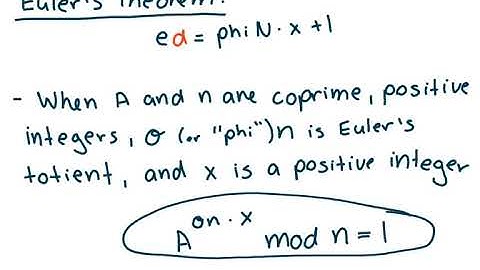 Euler's Theorem:
ed = phi N · x + 1
- When A and n are coprime, positive
integers, σ (or "phi")n is Euler's
totient, and x is a positive integer
A^σn · x mod n = 1